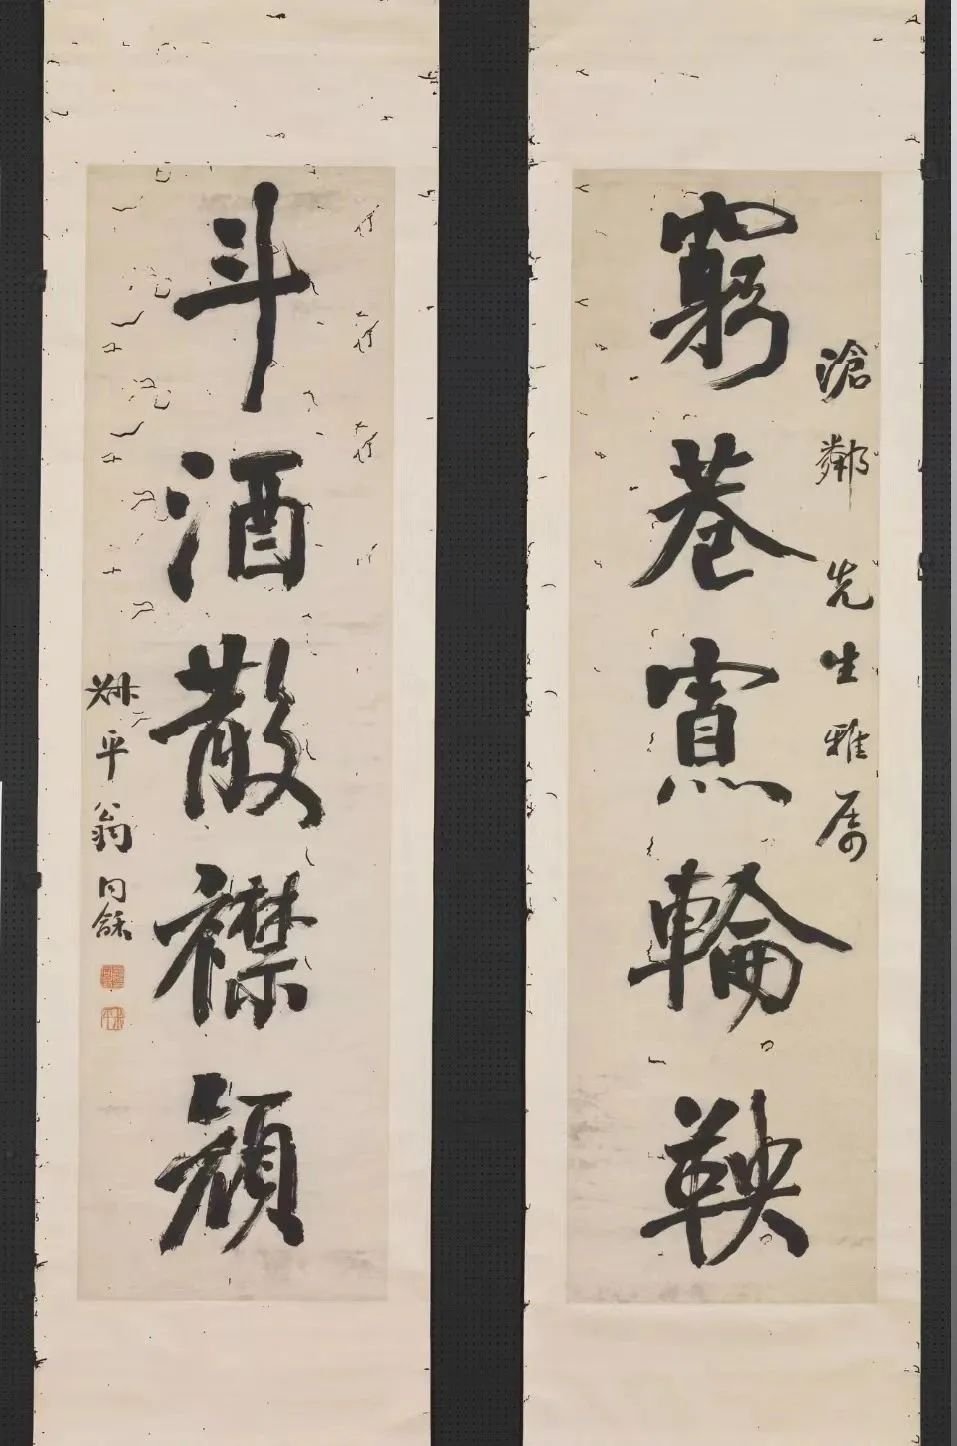 滄鄰先生雅属
窮巷寡輪鞅
斗酒散襟顔
叔平翁同龢